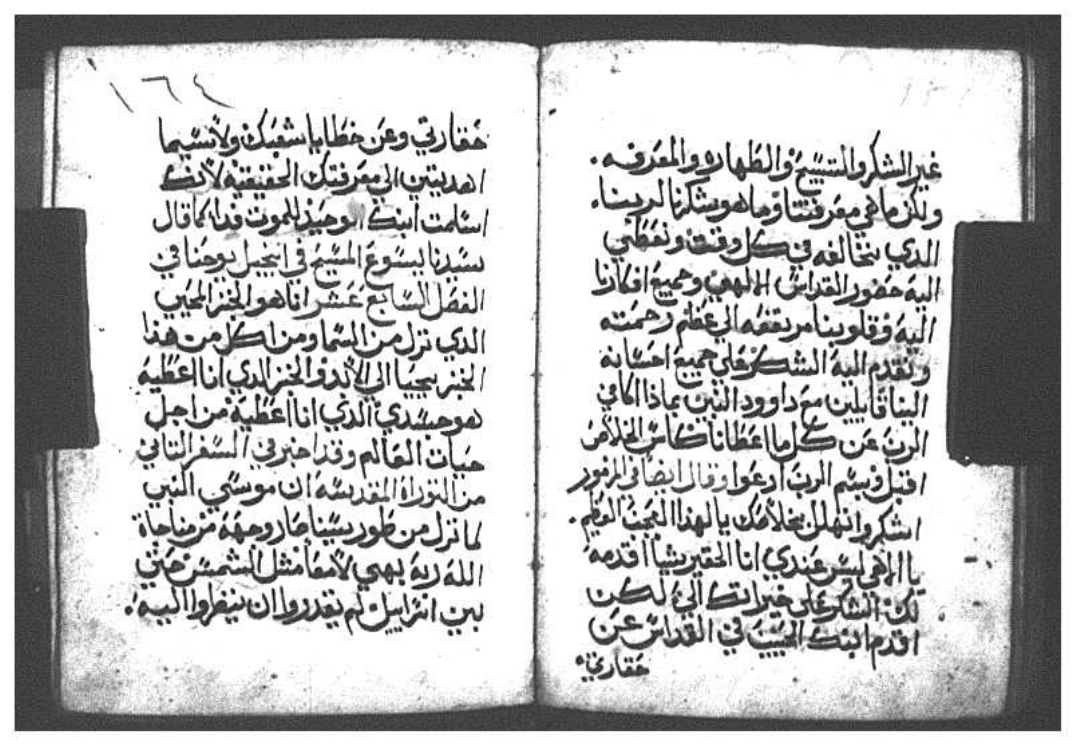 غير الشكر والتسبيح والطهاره والمعرفه.
ولكن ما هي معرفتنا وما هو شكرنا لربنا.
الدي نخالفه في كل وقت ونخطي
اليه حضور القداس الالهي وجميع افكارنا
اليه وقلوبنا مرتفعه الي عظم رحمته
ونقدم اليه الشكر علي جميع احسانه
الينا قايلين مع داوود النبي بماذا اكافي
الرب عن كل ما اعطانا كاس الخلاص
اقبل وبسم الرب ادعوا وقال ايضا في المزمور
اشكر وانهلل بخلاصك يا لهذا العجب العظيم.
يا الاهي ليس عندي انا الحقير شيا اقدمه
لك الشكر علي خيراتك الي لكن
اقدم ابنك الحبيب في القداس عن
حقارتي
١٦٤
حقارتي وعن خطايا شعبك ولاسيما
اهديتني الي معرفتك الحقيقيه لانك
اسلمت ابنك الوحيد للموت فدا كما قال
سيدنا يسوع المسيح في انجيل يوحنا في
الفصل السابع عشر انا هو الخبز المحيي
الدي نزل من السما ومن اكل من هدا
الخبز يحيا الي الابد والخبز الدي انا اعطيه
هو جسدي الدي انا اعطيه من اجل
حيات العالم وقد اخبر في السفر التاني
من التوراة المقدسه ان موسي النبي
لما نزل من طور سينا صار وجهه من مناجاة
الله ربه بهي لامعا مثل الشمس حتي
بني اسراييل لم يقدروا ان ينظروا اليه.